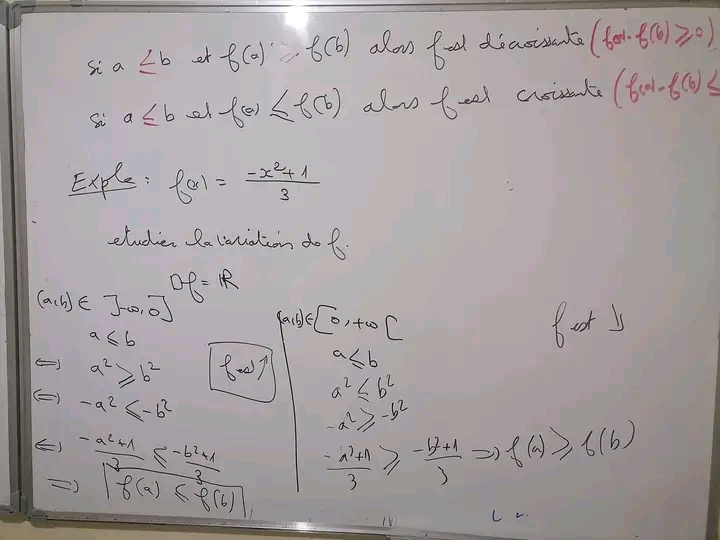 si a ≤ b et f(a) ≥ f(b) alors f est décroissante (f(a)-f(b) ≥ 0)
si a ≤ b et f(a) ≤ f(b) alors f est croissante (f(a)-f(b) ≤
Exple : f(x) = (-x²+1)/3
etudier la variation de f.
Df = ℝ
(a,b) ∈ ]-∞, 0]
a ≤ b
⇔ a² ≥ b²
⇔ -a² ≤ -b²
⇔ (-a²+1)/3 ≤ (-b²+1)/3
⇒ f(a) ≤ f(b)
f est ↑
(a,b) ∈ [0, +∞[
a ≤ b
a² ≤ b²
-a² ≥ -b²
(-a²+1)/3 ≥ (-b²+1)/3 ⇒ f(a) ≥ f(b)
f est ↓